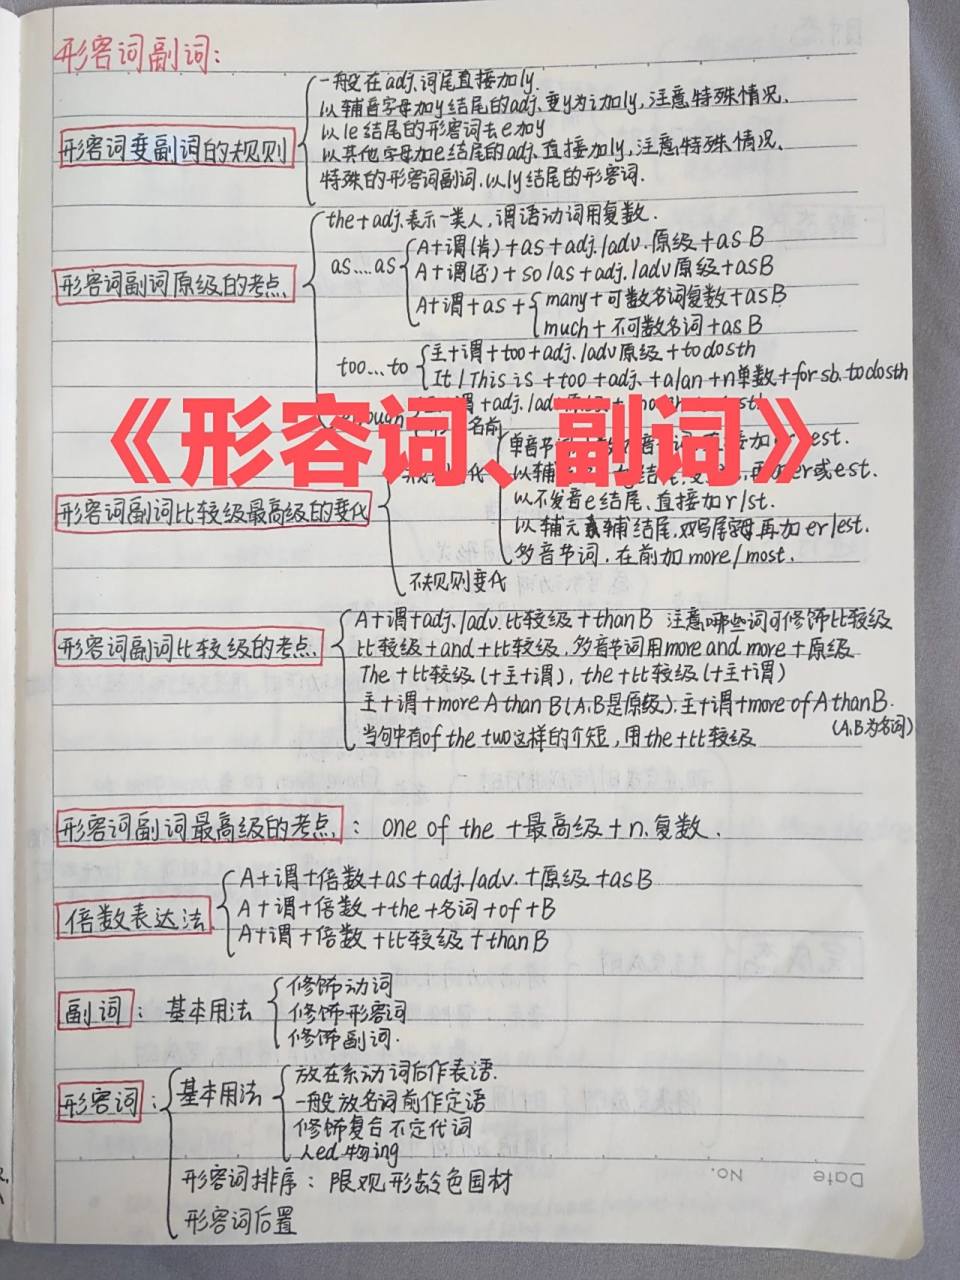 形容词副词:
形容词变副词的规则
一般在adj.词尾直接加ly.
以辅音字母加y结尾的adj.变y为i加ly,注意特殊情况.
以le结尾的形容词去e加y
以其他字母加e结尾的adj.直接加ly,注意特殊情况.
特殊的形容词副词.以ly结尾的形容词.
形容词副词原级的考点.
the+adj.表示一类人,谓语动词用复数.
as....as
A+谓(肯)+as+adj./adv.原级+as B
A+谓(否)+so/as+adj./adv原级+asB
A+谓+as+
many+可数名词复数+asB
much+不可数名词+as B
too...to
主+谓+too+adj./adv原级+todosth
It/This is +too+adj.+a/an+n单数+forsb.todosth
+adj./adv
名前
《形容词、副词》
形容词副词比较级最高级的变化
单音节 加er/est.
以辅 er或est.
以不发音e结尾.直接加r/st.
以辅元辅结尾,双写尾字母再加er/est.
多音节词.在前加more/most.
不规则变化
形容词副词比较级的考点.
A+谓+adj./adv.比较级+thanB 注意哪些词可修饰比较级
比较级+and+比较级,多音节词用more and more+原级
The+比较级(+主+谓),the+比较级(+主+谓)
主+谓+more A than B(A.B是原级).主+谓+more of A thanB.
(A.B为名词)
当句中有of the two这样的介短,用the+比较级
形容词副词最高级的考点.: one of the +最高级+n.复数.
倍数表达法
A+谓+倍数+as+adj./adv.+原级+asB
A+谓+倍数+the+名词+of+B
A+谓+倍数+比较级+thanB
副词: 基本用法
修饰动词
修饰形容词
修饰副词.
形容词:
基本用法
放在系动词后作表语.
一般放名词前作定语
修饰复合不定代词
人ed.物ing
形容词排序:限观形龄色国材
形容词后置
Date No.